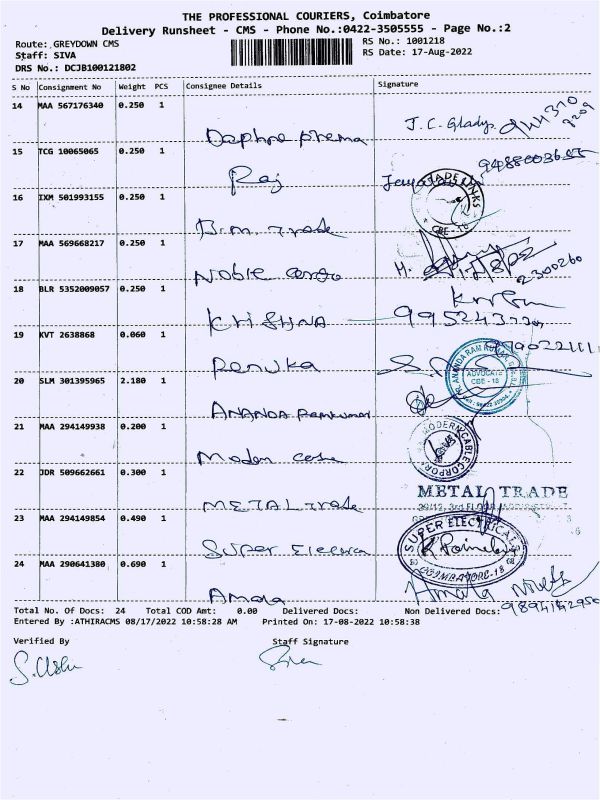 THE PROFESSIONAL COURIERS, Coimbatore
Delivery Runsheet - CMS - Phone No.:0422-3505555 - Page No.:2
Route: GREYDOWN CMS
RS No.: 1001218
Staff: SIVA
RS Date: 17-Aug-2022
DRS No.: DCJB100121802
S No Consignment No Weight PCS Consignee Details Signature
14 MAA 567176340 0.250 1
Daphne prema J.C. Gladys
15 TCG 10065065 0.250 1
Raj
16 IXM 501993155 0.250 1
B.M. Trade
TRADE LINKS
CBE-18
17 MAA 569668217 0.250 1
Noble cargo
2300260
18 BLR 5352009057 0.250 1
KRISHNA
19 KVT 2638868 0.060 1
Renuka
20 SLM 301395965 2.180 1
ADVOCATE
CBE - 18
ANANDA Ramkumar
21 MAA 294149938 0.200 1
MODERN CABLE CORPOR
22 JDR 509662661 0.300 1
METAL TRADE
METAL TRADE
39/12, 3rd FLOOR
23 MAA 294149854 0.490 1
SUPER ELECTRICALS
COIMBATORE-18
Super Electrica
24 MAA 290641380 0.690 1
Amala Amala
Total No. Of Docs: 24 Total COD Amt: 0.00 Delivered Docs: Non Delivered Docs:
9894142950
Entered By :ATHIRACMS 08/17/2022 10:58:28 AM Printed On: 17-08-2022 10:58:38
Verified By Staff Signature
S. Usha Siva